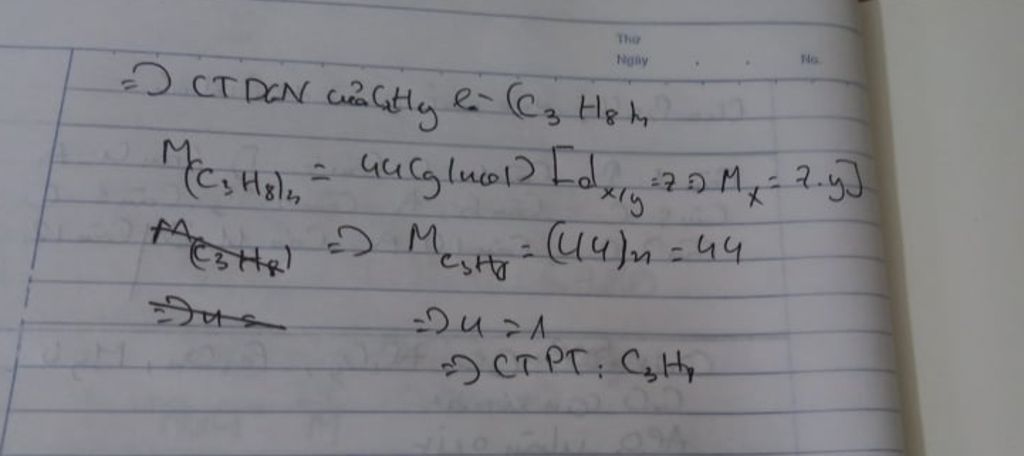 Thứ
Ngày . . No.
=> CTDGN của CxHy là (C3H8)n
M(C3H8)n = 44(g/mol) [dx/y = z => Mx = z.y]
M(C3H8) => MC3H8 = (44)n = 44
=> n = => n = 1
=> CTPT: C3H8